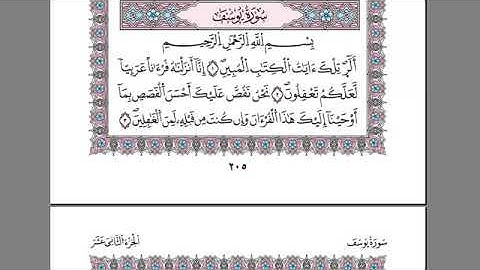 سُورَةُ يُوسُفَ
بِسْمِ اللَّهِ الرَّحْمَٰنِ الرَّحِيمِ
الٓر تِلْكَ ءَايَٰتُ الْكِتَٰبِ الْمُبِينِ ١ إِنَّآ أَنزَلْنَٰهُ قُرْءَٰنًا عَرَبِيًّا
لَّعَلَّكُمْ تَعْقِلُونَ ٢ نَحْنُ نَقُصُّ عَلَيْكَ أَحْسَنَ الْقَصَصِ بِمَآ
أَوْحَيْنَآ إِلَيْكَ هَٰذَا الْقُرْءَانَ وَإِن كُنتَ مِن قَبْلِهِ لَمِنَ الْغَٰفِلِينَ ٣
٢٠٥
سُورَةُ يُوسُفَ
الْجُزْءُ الثَّانِيَ عَشَرَ